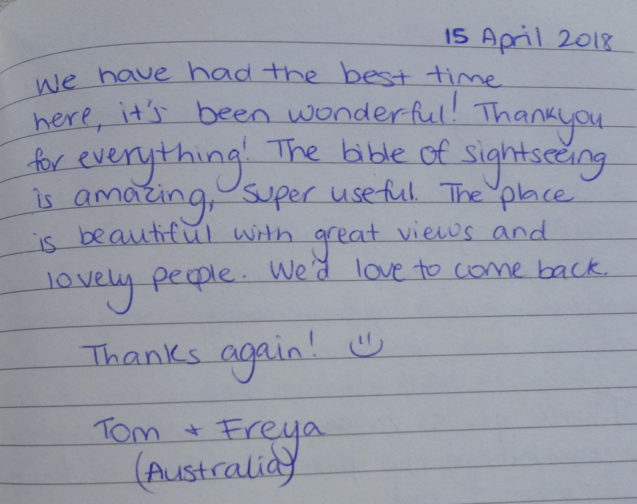 15 April 2018
We have had the best time
here, it's been wonderful! Thankyou
for everything! The bible of sightseeing
is amazing, super useful. The place
is beautiful with great views and
lovely people. We'd love to come back.
Thanks again! :)
Tom + Freya
(Australia)